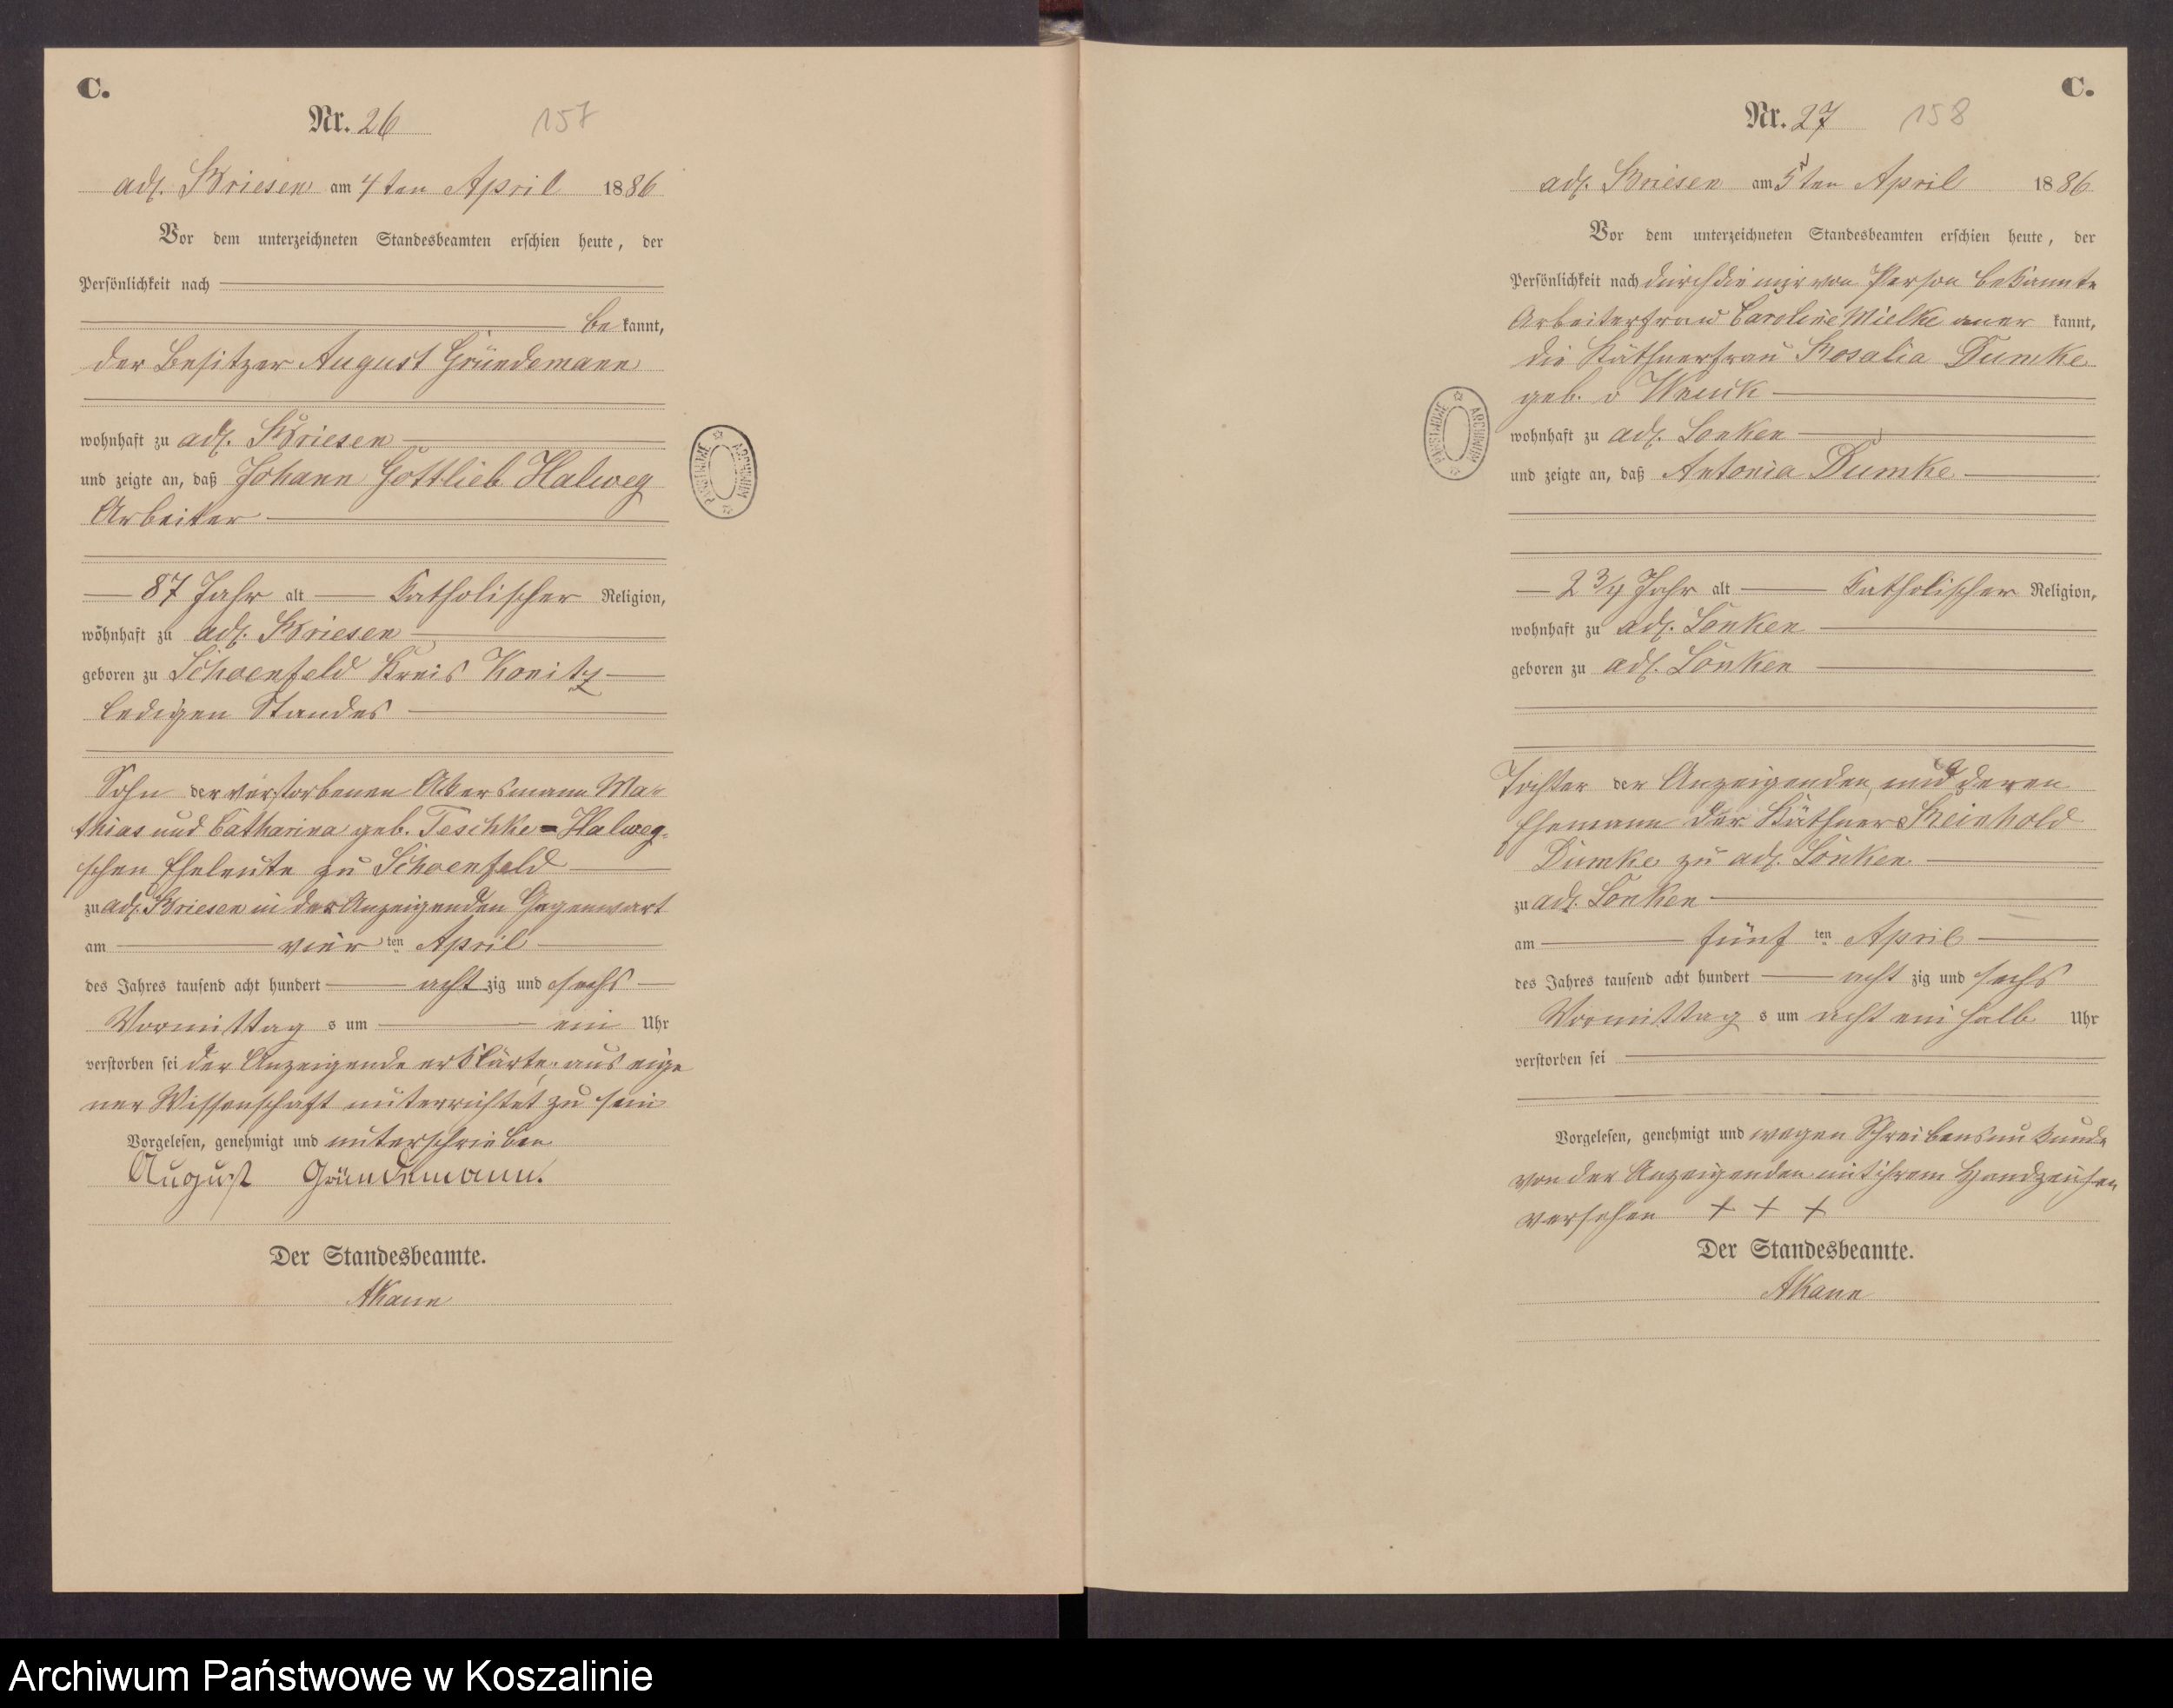 C.
Nr. 26
157
adl. Briesen am 4ten April 1886
Vor dem unterzeichneten Standesbeamten erschien heute, der
Persönlichkeit nach
be kannt,
der Besitzer August Gründemann
wohnhaft zu adl. Briesen
und zeigte an, daß Johann Gottlieb Halweg
Arbeiter
87 Jahr alt Katholischer Religion,
wohnhaft zu adl. Briesen
geboren zu Schoenfeld Kreis Konitz
ledigen Standes
Sohn der verstorbenen Akersmann Ma-
thias und Catharina geb. Teschke-Halweg-
schen Eheleute zu Schoenfeld
zu adl. Briesen in des Anzeigenden Gegenwart
am vier ten April
des Jahres tausend acht hundert acht zig und sechs
Vormittag s um ein Uhr
verstorben sei der Anzeigende erklärte, aus eige
ner Wissenschaft unterrichtet zu sein
Vorgelesen, genehmigt und unterschrieben
August Gründemann.
Der Standesbeamte.
AKann
ARCHIWUM PAŃSTWOWE
C.
Nr. 27
158
adl. Briesen am 5ten April 1886
Vor dem unterzeichneten Standesbeamten erschien heute, der
Persönlichkeit nach durch die mir von Person bekannte
Arbeiterfrau Caroline Mielke aner kannt,
die Käthnerfrau Rosalia Dumke
geb. v Wnuk
wohnhaft zu adl. Lonken
und zeigte an, daß Antonia Dumke
2 3/4 Jahr alt Katholischer Religion,
wohnhaft zu adl. Lonken
geboren zu adl. Lonken
Tochter der Anzeigenden und deren
Ehemann der Käthners Reinhold
Dumke zu adl. Lonken
zu adl. Lonken
am fünf ten April
des Jahres tausend acht hundert acht zig und sechs
Vormittag s um acht ein halb Uhr
verstorben sei
Vorgelesen, genehmigt und wegen Schreibensunkunde
von der Anzeigenden mit ihrem Handzeichen
versehen + + +
Der Standesbeamte.
AKann
ARCHIWUM PAŃSTWOWE
Archiwum Państwowe w Koszalinie